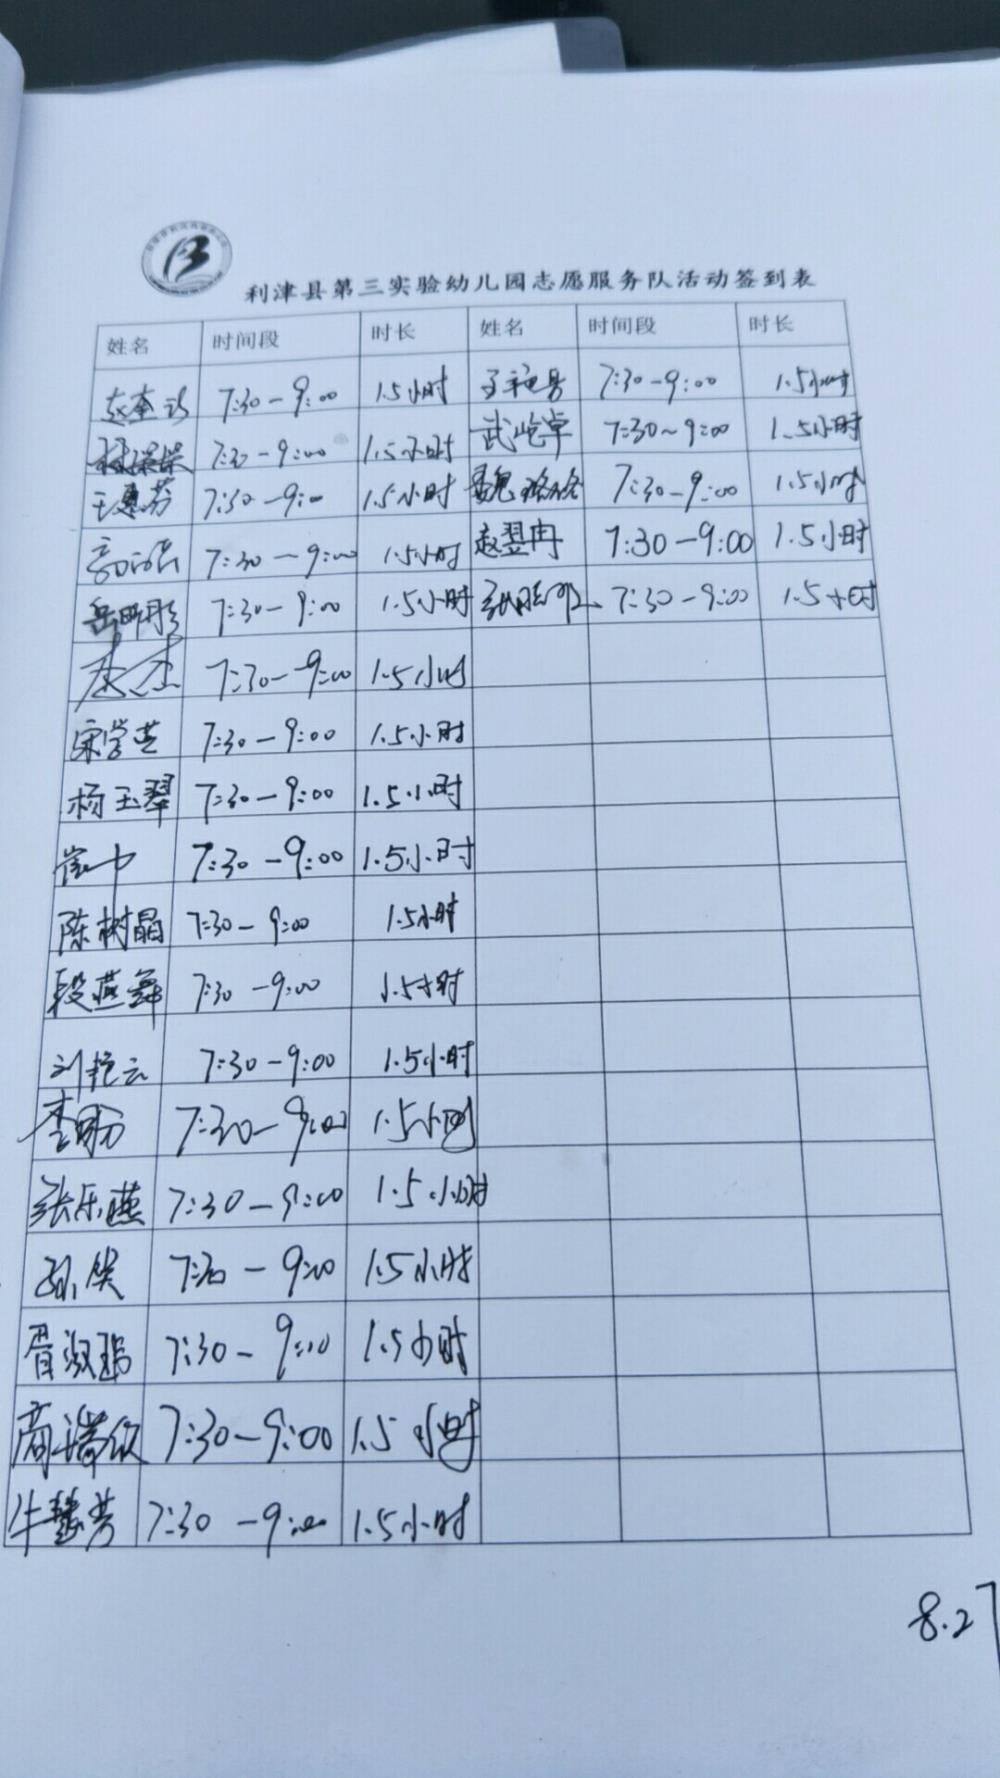 利津县第三实验幼儿园志愿服务队活动签到表
姓名 时间段 时长 姓名 时间段 时长
7:30-9:00 1.5小时 7:30-9:00 1.5小时
7:30-9:00 1.5小时 武屹卓 7:30~9:00 1.5小时
王惠芬 7:30-9:00 1.5小时 魏 7:30-9:00 1.5小时
7:30-9:00 1.5小时 赵翌冉 7:30-9:00 1.5小时
岳明彤 7:30-9:00 1.5小时 7:30-9:00 1.5小时
7:30-9:00 1.5小时
宋学芝 7:30-9:00 1.5小时
杨玉翠 7:30-9:00 1.5小时
7:30-9:00 1.5小时
陈树晶 7:30-9:00 1.5小时
段燕舞 7:30-9:00 1.5小时
刘艳云 7:30-9:00 1.5小时
7:30-9:00 1.5小时
张乐燕 7:30-9:00 1.5小时
7:30-9:00 1.5小时
胥淑 7:30-9:00 1.5小时
商 7:30-9:00 1.5小时
牛慧芳 7:30-9:00 1.5小时
8.27